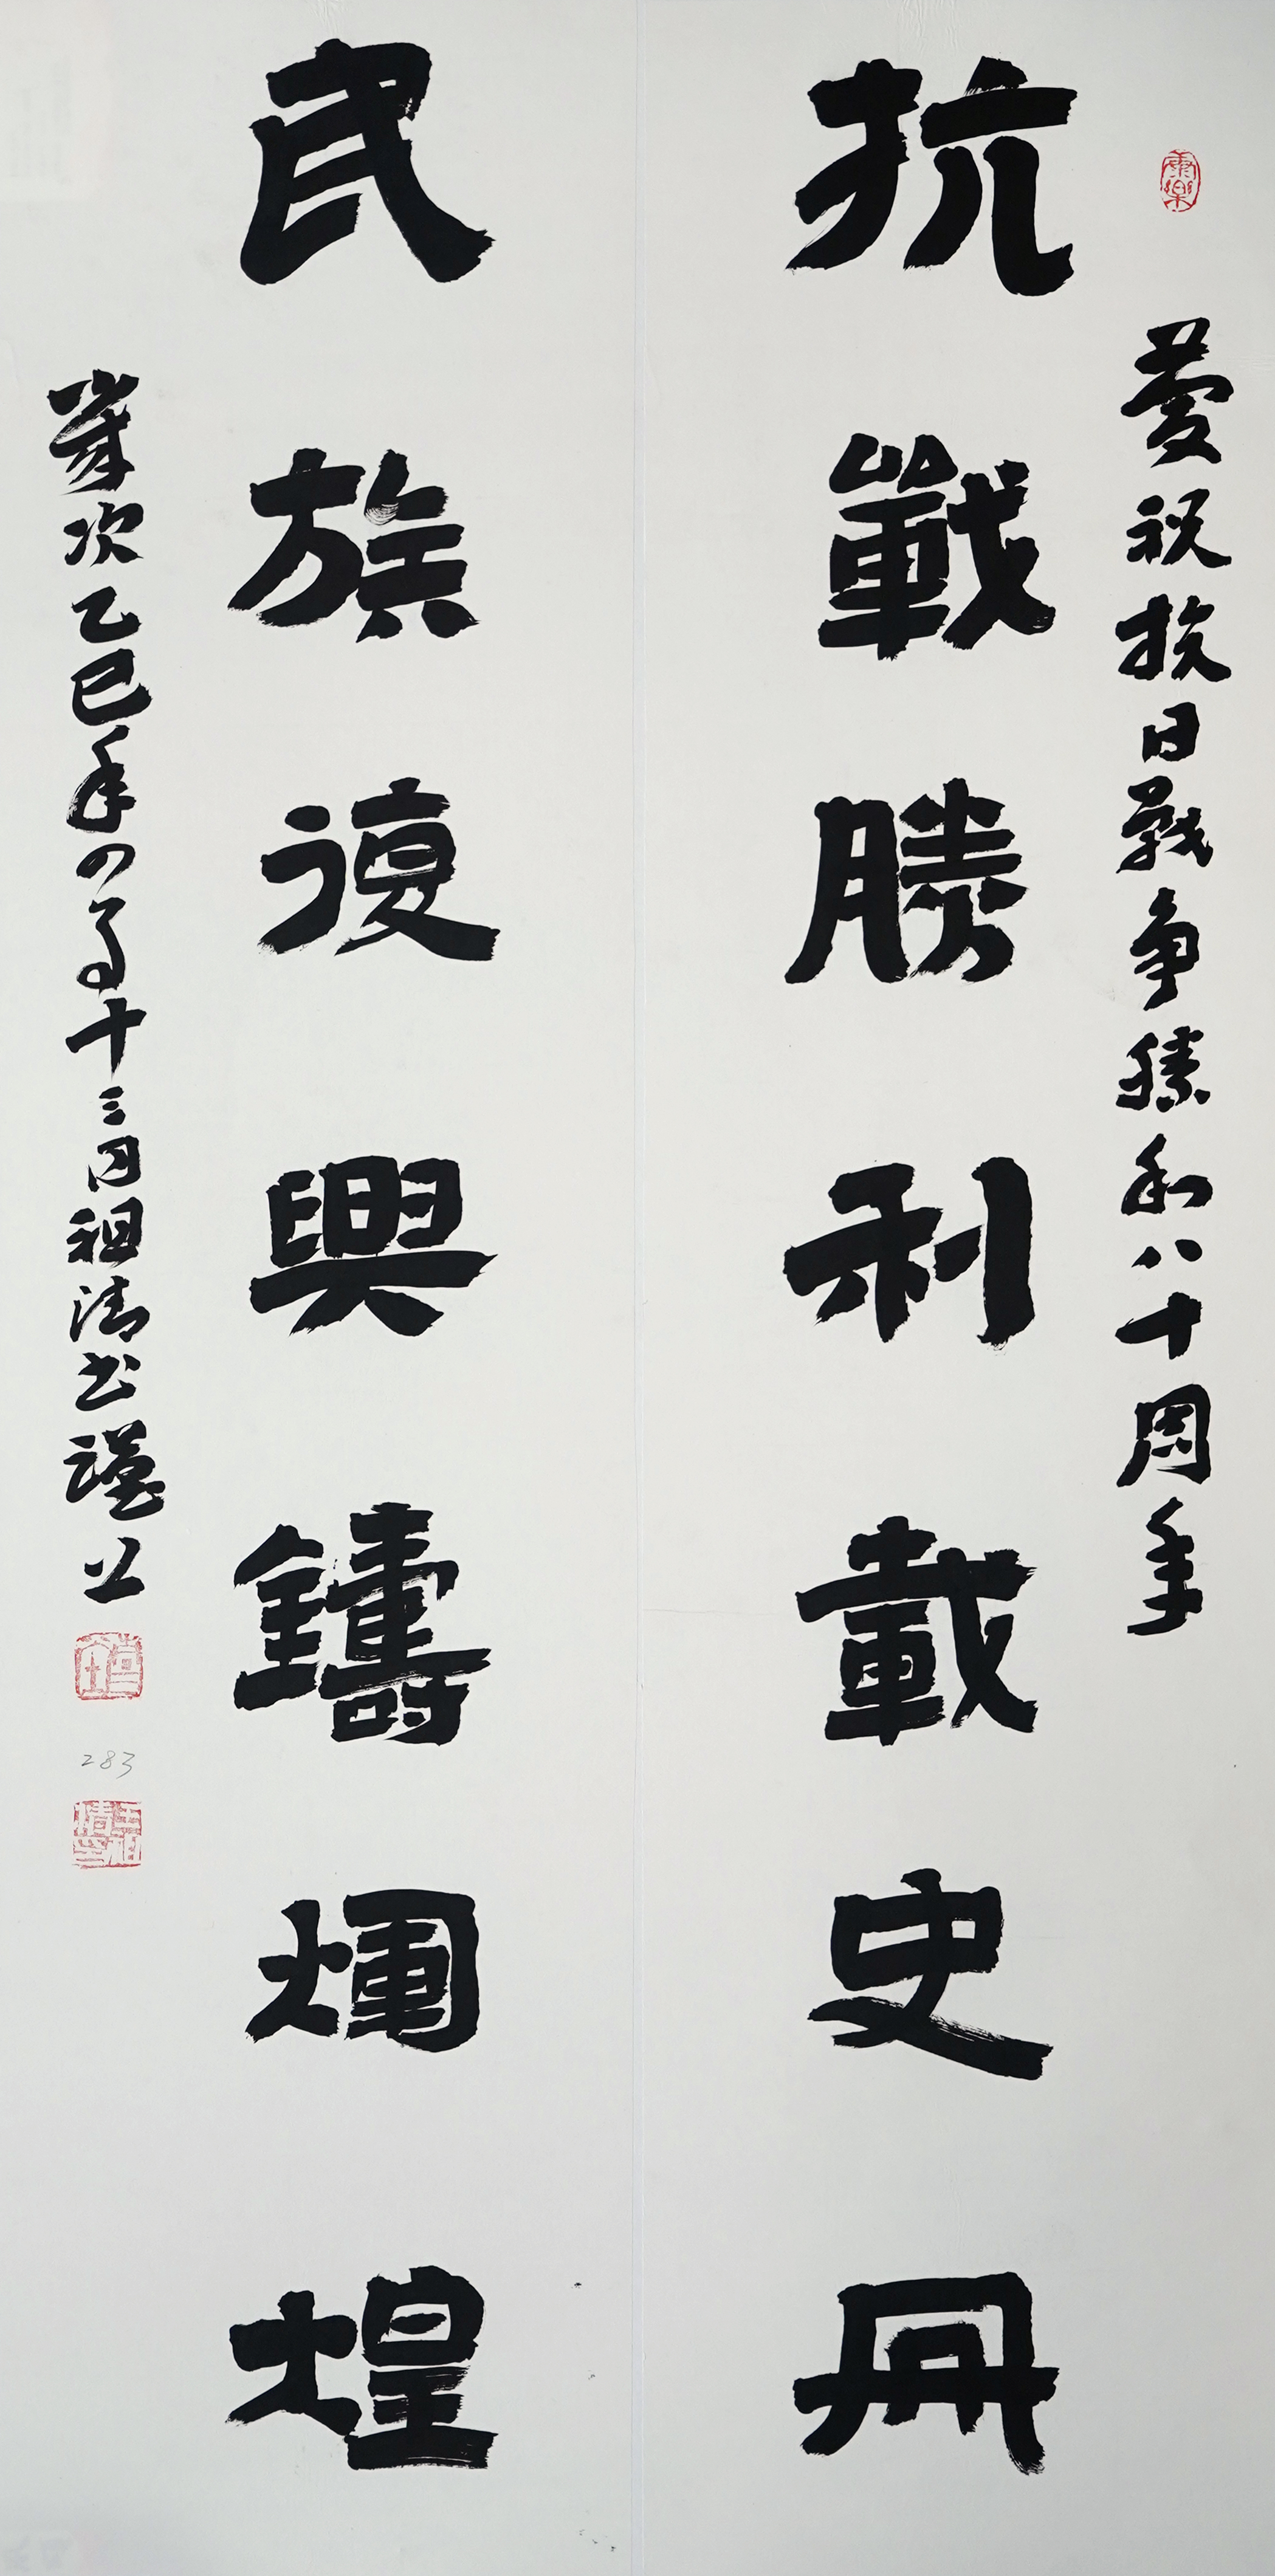 慶祝抗日戰爭勝利八十周年
抗戰勝利載史冊
民族復興鑄煇煌
歲次乙巳年四月十三日祖清书謹上
283